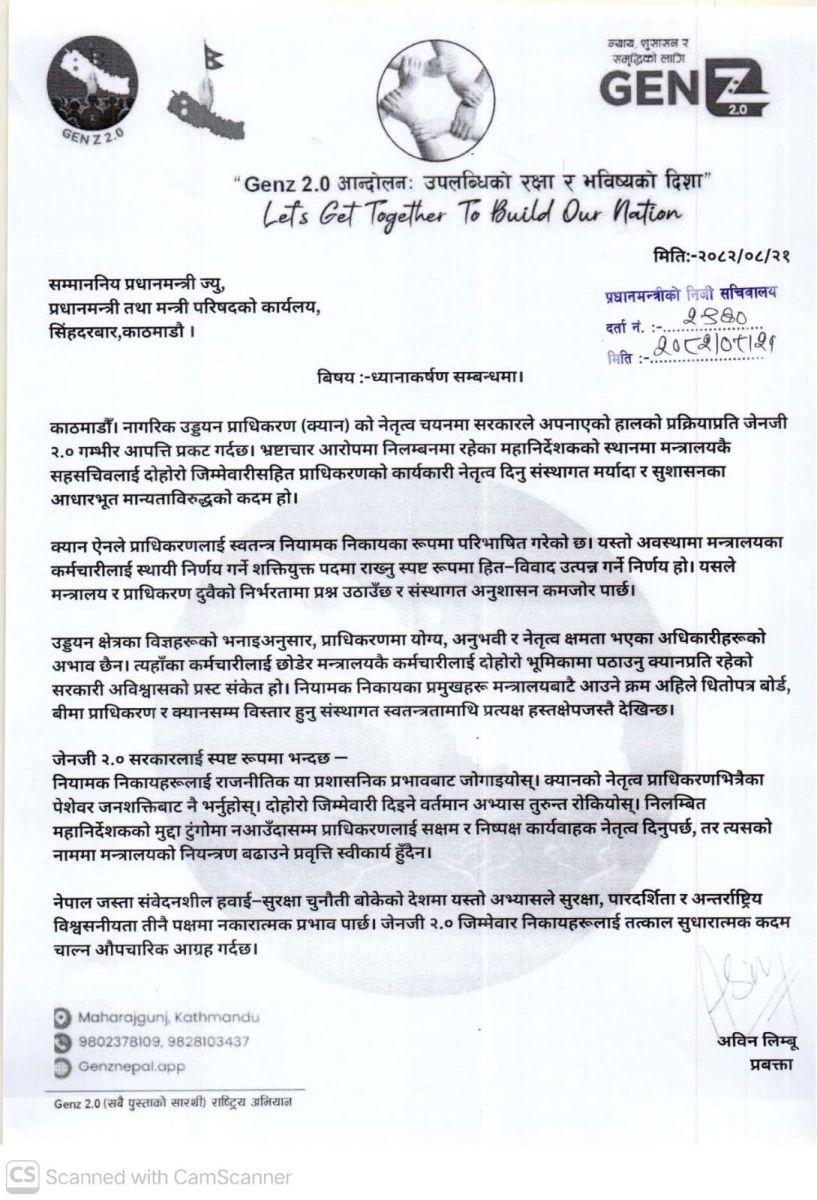 GEN Z 2.0
न्याय, सुशासन र
समृद्धिको लागि
GEN Z
2.0
“Genz 2.0 आन्दोलन: उपलब्धिको रक्षा र भविष्यको दिशा”
Let's Get Together To Build Our Nation
मिति:-२०८२/०८/२१
सम्माननिय प्रधानमन्त्री ज्यु,
प्रधानमन्त्री तथा मन्त्री परिषदको कार्यलय,
सिंहदरबार,काठमाडौ ।
प्रधानमन्त्रीको निजी सचिवालय
दर्ता नं. :-
मिति :- २०८२/०८/२१
बिषय :-ध्यानाकर्षण सम्बन्धमा।
काठमाडौँ। नागरिक उड्डयन प्राधिकरण (क्यान) को नेतृत्व चयनमा सरकारले अपनाएको हालको प्रक्रियाप्रति जेनजी
२.० गम्भीर आपत्ति प्रकट गर्दछ। भ्रष्टाचार आरोपमा निलम्बनमा रहेका महानिर्देशकको स्थानमा मन्त्रालयकै
सहसचिवलाई दोहोरो जिम्मेवारीसहित प्राधिकरणको कार्यकारी नेतृत्व दिनु संस्थागत मर्यादा र सुशासनका
आधारभूत मान्यताविरुद्धको कदम हो।
क्यान ऐनले प्राधिकरणलाई स्वतन्त्र नियामक निकायका रूपमा परिभाषित गरेको छ। यस्तो अवस्थामा मन्त्रालयका
कर्मचारीलाई स्थायी निर्णय गर्ने शक्तियुक्त पदमा राख्नु स्पष्ट रूपमा हित–विवाद उत्पन्न गर्ने निर्णय हो। यसले
मन्त्रालय र प्राधिकरण दुवैको निर्भरतामा प्रश्न उठाउँछ र संस्थागत अनुशासन कमजोर पार्छ।
उड्डयन क्षेत्रका विज्ञहरूको भनाइअनुसार, प्राधिकरणमा योग्य, अनुभवी र नेतृत्व क्षमता भएका अधिकारीहरूको
अभाव छैन। त्यहाँका कर्मचारीलाई छोडेर मन्त्रालयकै कर्मचारीलाई दोहोरो भूमिकामा पठाउनु क्यानप्रति रहेको
सरकारी अविश्वासको प्रस्ट संकेत हो। नियामक निकायका प्रमुखहरू मन्त्रालयबाटै आउने क्रम अहिले धितोपत्र बोर्ड,
बीमा प्राधिकरण र क्यानसम्म विस्तार हुनु संस्थागत स्वतन्त्रतामाथि प्रत्यक्ष हस्तक्षेपजस्तै देखिन्छ।
जेनजी २.० सरकारलाई स्पष्ट रूपमा भन्दछ –
नियामक निकायहरूलाई राजनीतिक या प्रशासनिक प्रभावबाट जोगाइयोस्। क्यानको नेतृत्व प्राधिकरणभित्रैका
पेशेवर जनशक्तिबाट नै भर्नुहोस्। दोहोरो जिम्मेवारी दिइने वर्तमान अभ्यास तुरुन्त रोकियोस्। निलम्बित
महानिर्देशकको मुद्दा टुंगोमा नआउँदासम्म प्राधिकरणलाई सक्षम र निष्पक्ष कार्यवाहक नेतृत्व दिनुपर्छ, तर त्यसको
नाममा मन्त्रालयको नियन्त्रण बढाउने प्रवृत्ति स्वीकार्य हुँदैन।
नेपाल जस्ता संवेदनशील हवाई–सुरक्षा चुनौती बोकेको देशमा यस्तो अभ्यासले सुरक्षा, पारदर्शिता र अन्तर्राष्ट्रिय
विश्वसनीयता तीनै पक्षमा नकारात्मक प्रभाव पार्छ। जेनजी २.० जिम्मेवार निकायहरूलाई तत्काल सुधारात्मक कदम
चाल्न औपचारिक आग्रह गर्दछ।
Maharajgunj, Kathmandu
9802378109, 9828103437
Genznepal.app
अविन लिम्बू
प्रबक्ता
Genz 2.0 (सबै पुस्ताको सारथी) राष्ट्रिय अभियान
CS Scanned with CamScanner